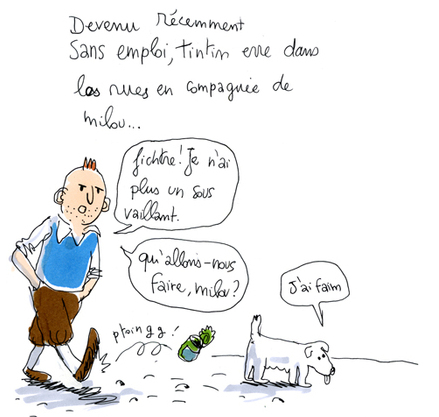 Devenu récemment
Sans emploi, tintin erre dans
les rues en compagnie de
milou...
fichtre! Je n'ai
plus un sous
vaillant.
qu'allons-nous
faire, milou?
J'ai faim
ptoingg!